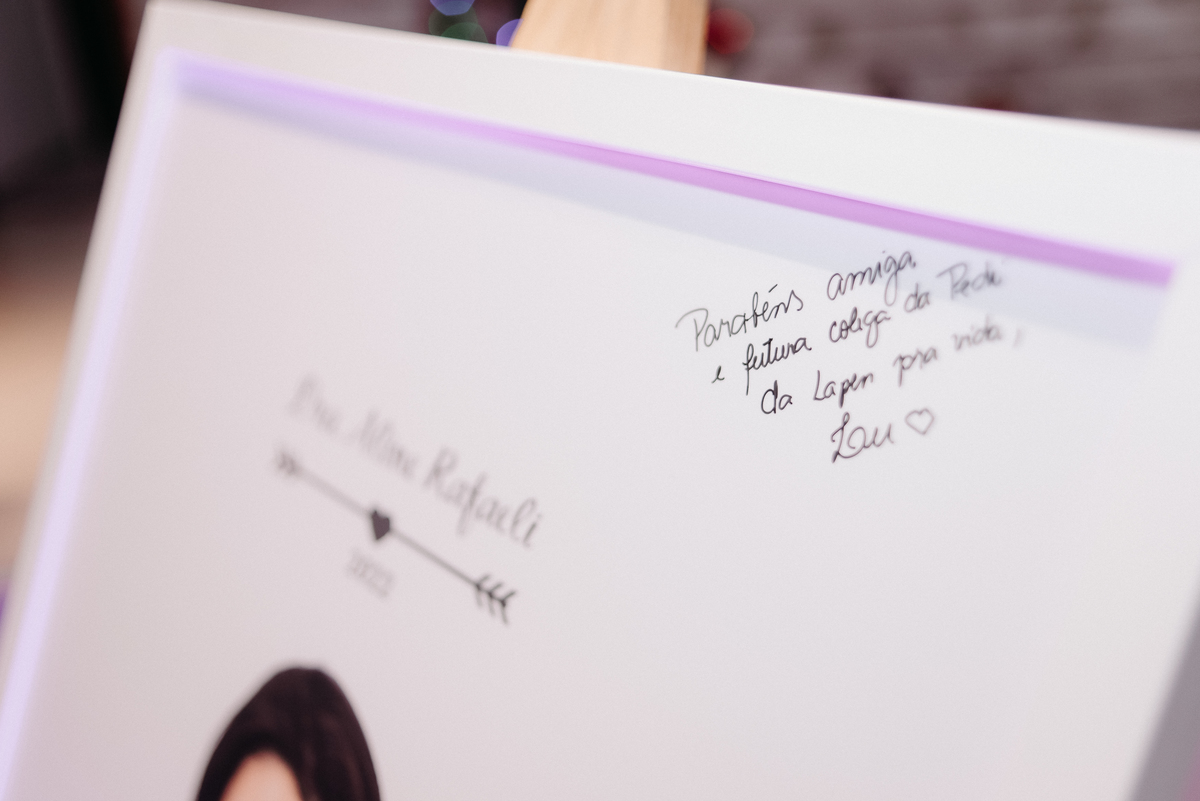 Parabéns amiga
e futura colega da Pedi
da Lapen pra vida,
Lau ♡
Rafaeli
2022